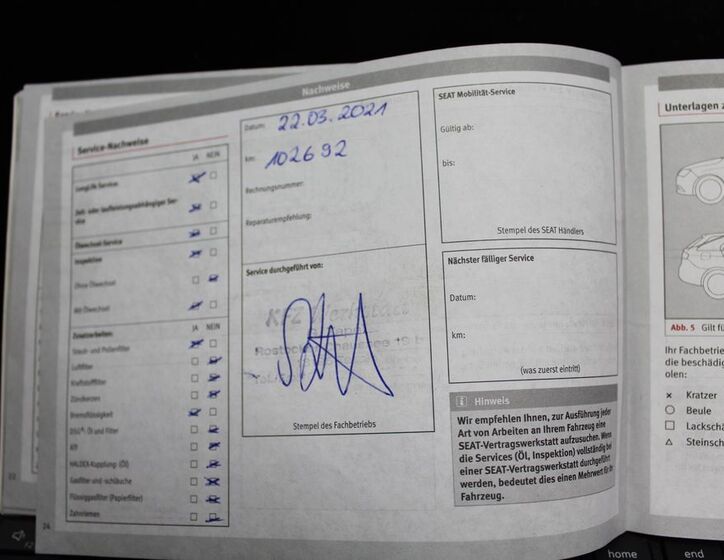 Nachweise
Service-Nachweise
JA NEIN
LongLife Service
Zeit- oder laufleistungsabhängiger Ser-
vice
Ölwechsel-Service
Inspektion
Ohne Ölwechsel
Mit Ölwechsel
Zusatzarbeiten: JA NEIN
Staub- und Pollenfilter
Luftfilter
Kraftstofffilter
Zündkerzen
Bremsflüssigkeit
DSG®: Öl und Filter
ATF
HALDEX-Kupplung (Öl)
Gasfilter und -schläuche
Flüssiggasfilter (Papierfilter)
Zahnriemen
24
Datum: 22.03.2021
km: 102692
Rechnungsnummer:
Reparaturempfehlung:
Service durchgeführt von:
KFZ Werkstatt
Stempel des Fachbetriebs
SEAT Mobilität-Service
Gültig ab:
bis:
Stempel des SEAT Händlers
Nächster fälliger Service
Datum:
km:
(was zuerst eintritt)
i Hinweis
Wir empfehlen Ihnen, zur Ausführung jeder
Art von Arbeiten an Ihrem Fahrzeug eine
SEAT-Vertragswerkstatt aufzusuchen. Wenn
die Services (Öl, Inspektion) vollständig bei
einer SEAT-Vertragswerkstatt durchgeführt
werden, bedeutet dies einen Mehrwert für Ihr
Fahrzeug.
Unterlagen z
Abb. 5 Gilt fü
Ihr Fachbetrie
die beschädig
olen:
Kratzer
Beule
Lackschä
Steinsch
22
F2
home
end